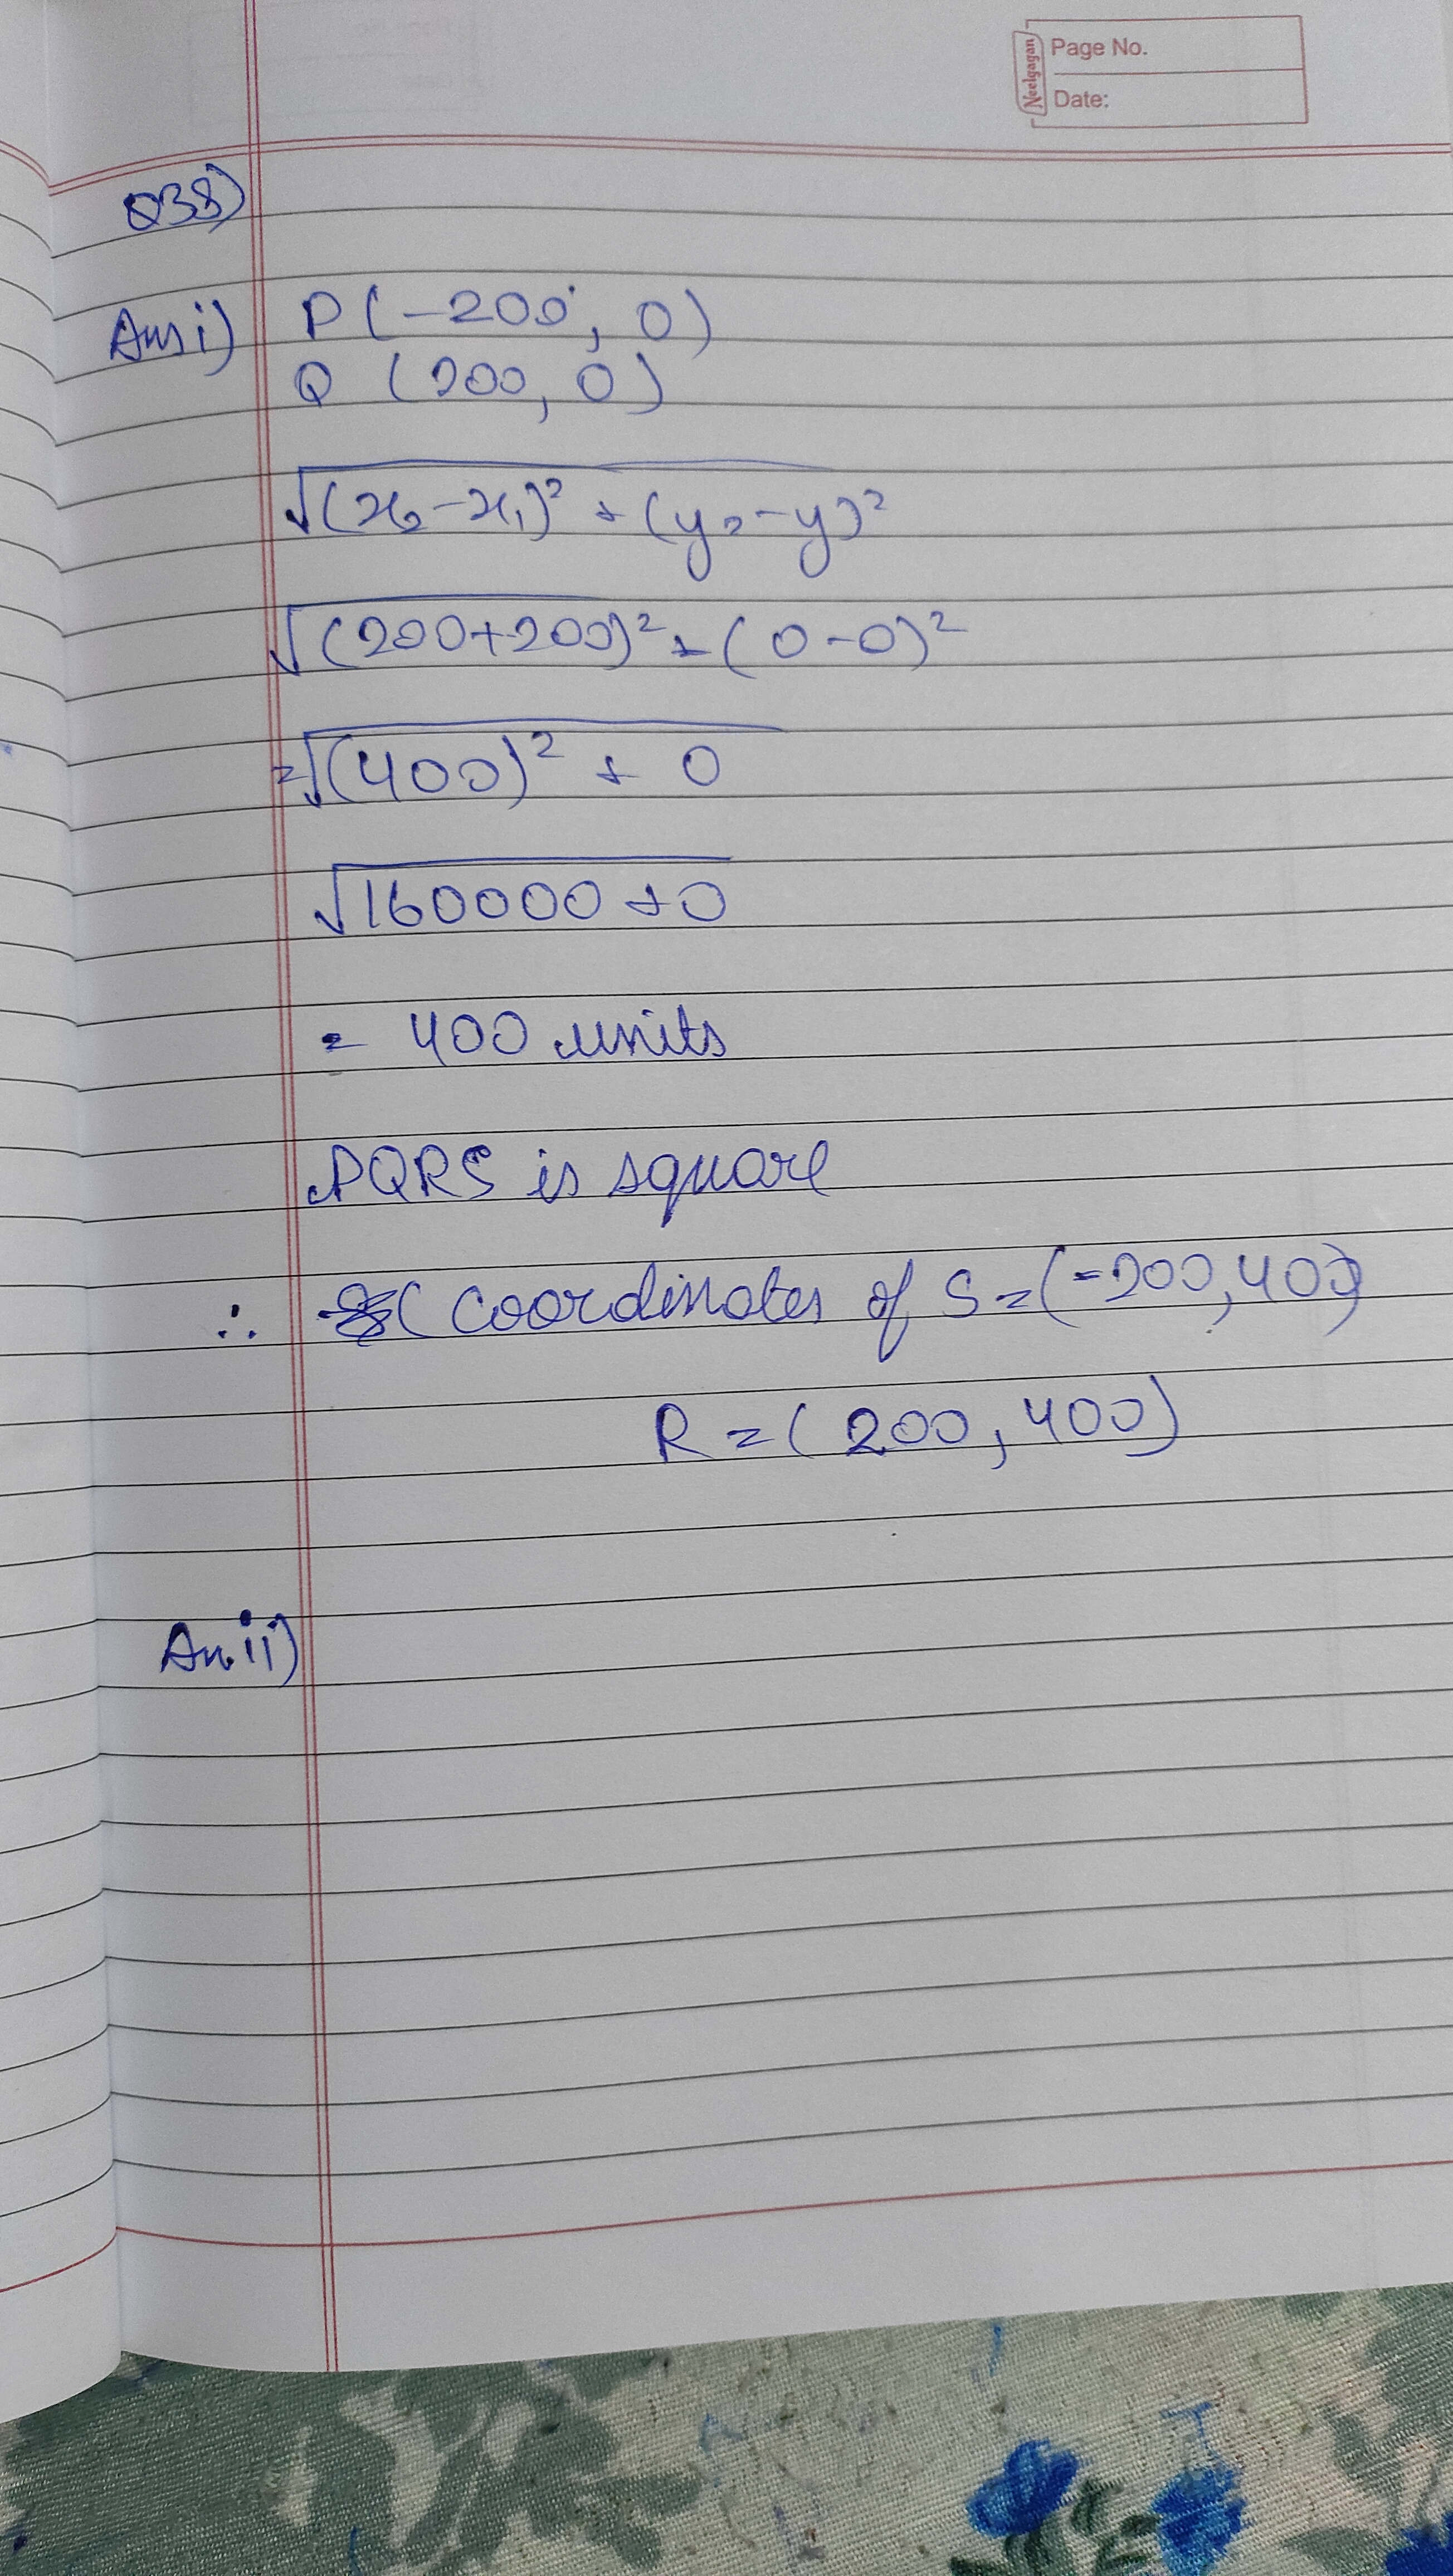 Neelgagan
Page No.
Date:
Q38)
Ans i) P(-200, 0)
Q (200, 0)
√(x₂-x₁)² + (y₂-y)²
√(200+200)² + (0-0)²
=√(400)² + 0
√160000 + 0
= 400 units
PQRS is square
∴ Coordinates of S = (-200, 400)
R = (200, 400)
An. ii)